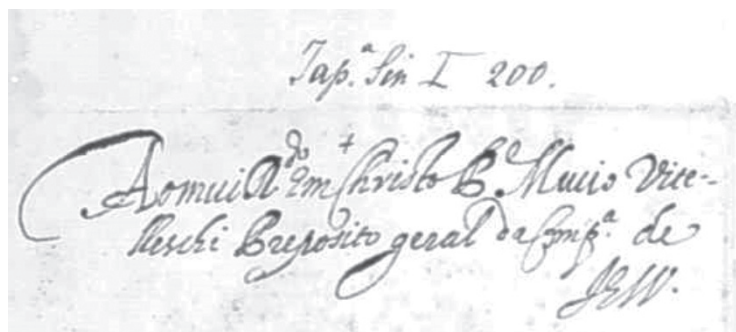 Jap.ª Sin I 200.
Ao mui R.do em Christo P.e Mucio Vite-
lleschi Preposito geral da Comp.ª de
JESV.